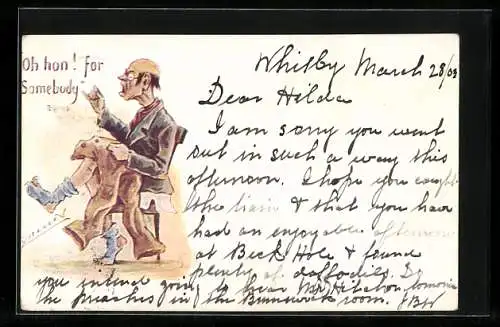 Oh hon! for
Somebody
Whitby March 28/03
Dear Hilda
I am sorry you went
out in such a way this
afternoon. I hope you caught
the train & that you have
had an enjoyable afternoon
at Beck Hole & found
plenty of daffodils. Do
you intend going to hear Mr
he preaches in the Brunswick room.